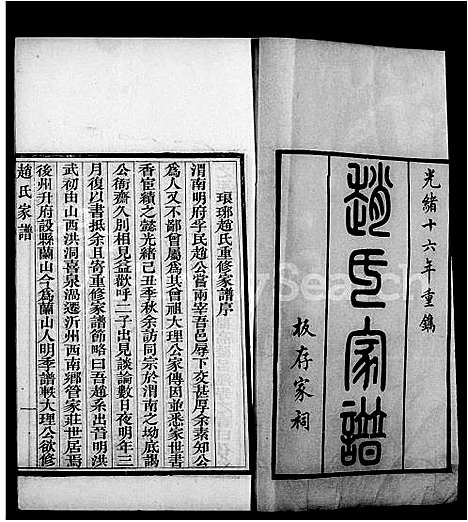 光緒十六年重鐫
趙氏家譜
板存家祠
琅琊趙氏重修家譜序
渭南明府孚民趙公嘗兩宰吾邑辱下交甚厚余素知公
爲人又不鄙曾屬爲其曾祖大理公家傳因並悉家世書
香宦績之懿光緒己丑季秋余訪同宗於渭南之坳底謁
公衙齋久別相見益歡呼二子出見談論數日夜明年三
月復以書抵余且寄重修家譜節略曰吾趙系出晉明洪
武初由山西洪洞喜泉渦遷沂州西南鄉管家莊世居焉
後州升府設縣蘭山今爲蘭山人明季譜軼大理公欲修
趙氏家譜